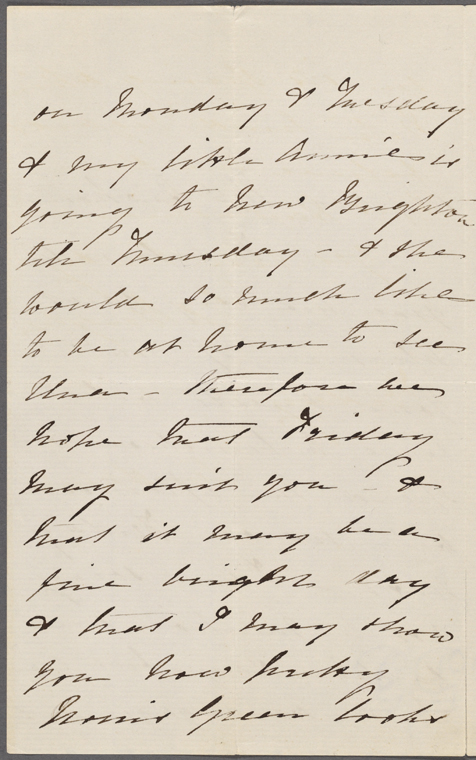 on Monday & Tuesday
& my little Annie is
going to New Brighton
till Thursday - & she
would so much like
to be at home to see
Una - therefore we
hope that Friday
may suit you - &
that it may be a
fine bright day
& that I may show
you how pretty
Norris Green looks